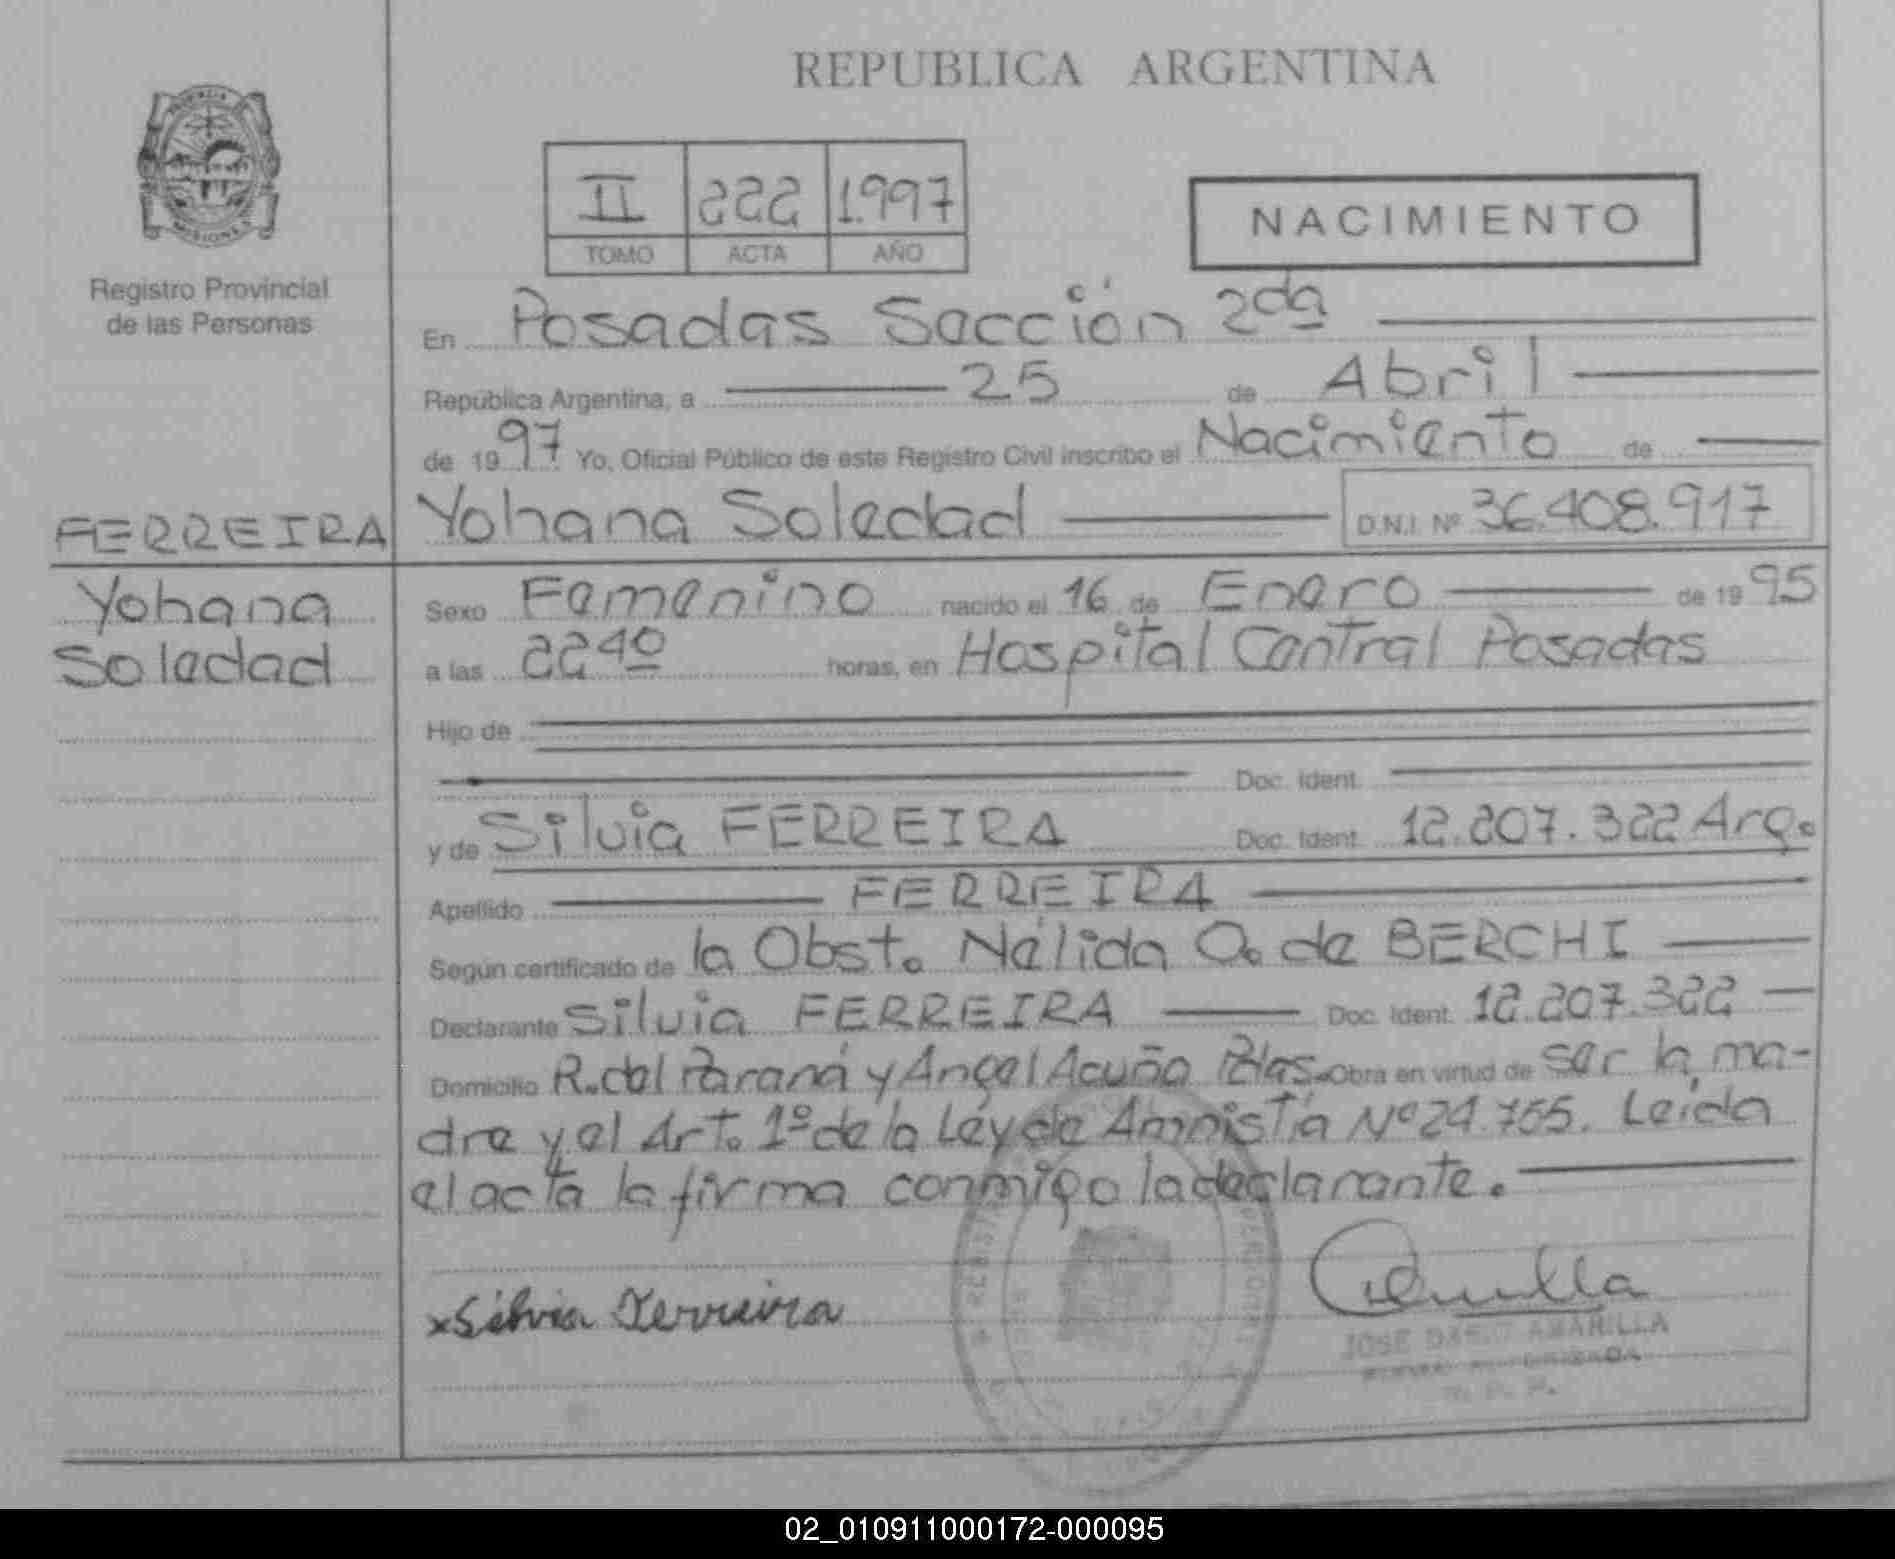 REPUBLICA ARGENTINA
PROVINCIA
MISIONES
Registro Provincial
de las Personas
II 222 1.997
TOMO ACTA AÑO
NACIMIENTO
En Posadas Sección 2da
República Argentina, a 25 de Abril
de 1997 Yo, Oficial Público de este Registro Civil inscribo el Nacimiento de
FERREIRA Yohana Soledad D.N.I. Nº 36.408.917
Yohana
Soledad
Sexo Femenino nacido el 16 de Enero de 1995
a las 22 40 horas, en Hospital Central Posadas
Hijo de
Doc. Ident.
y de Silvia FERREIRA Doc. Ident. 12.207.322 Arg.
Apellido FERREIRA
Según certificado de la Obst. Nélida O. de BERCHI
Declarante Silvia FERREIRA Doc. Ident. 12.207.322
Domicilio R. del Paraná y Angel Acuña Pdas. Obra en virtud de ser la ma-
dre y el Art. 1º de la Ley de Amnistía Nº 24.755. Leída
el acta la firma conmigo la declarante.
x Silvia Ferreira
JOSE AMARILLA
02_010911000172-000095